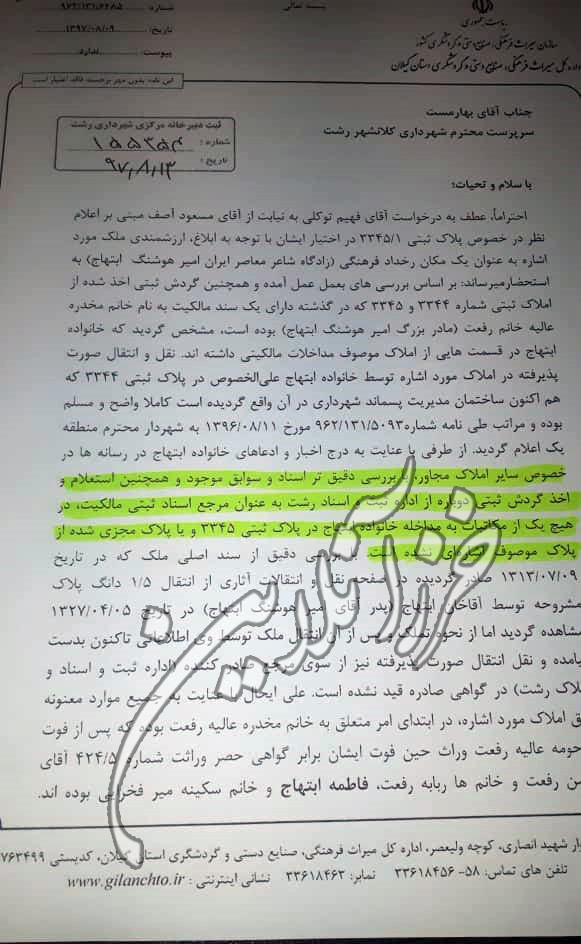 بسمه تعالی
ریاست جمهوری
سازمان میراث فرهنگی، صنایع دستی و گردشگری کشور
اداره کل میراث فرهنگی، صنایع دستی و گردشگری استان گیلان
شماره: ۹۶۲/۱۳۱/۶۴۸۵
تاریخ: ۱۳۹۷/۰۸/۰۹
پیوست: ندارد.
این نامه بدون مهر برجسته فاقد اعتبار است
ثبت دبیرخانه مرکزی شهرداری رشت
شماره: ۱۵۵۳۵۴
تاریخ: ۹۷/۸/۱۳
جناب آقای بهارمست
سرپرست محترم شهرداری کلانشهر رشت
با سلام و تحیات؛
احتراماً، عطف به درخواست آقای فهیم توکلی به نیابت از آقای مسعود آصف مبنی بر اعلام
نظر در خصوص پلاک ثبتی ۳۳۴۵/۱ در اختیار ایشان با توجه به ابلاغ، ارزشمندی ملک مورد
اشاره به عنوان یک مکان رخداد فرهنگی (زادگاه شاعر معاصر ایران امیر هوشنگ ابتهاج) به
استحضارمیرساند: بر اساس بررسی های بعمل عمل آمده و همچنین گردش ثبتی اخذ شده از
املاک ثبتی شماره ۳۳۴۴ و ۳۳۴۵ که در گذشته دارای یک سند مالکیت به نام خانم مخدره
عالیه خانم رفعت (مادر بزرگ امیر هوشنگ ابتهاج) بوده است، مشخص گردید که خانواده
ابتهاج در قسمت هایی از املاک موصوف مداخلات مالکیتی داشته اند. نقل و انتقال صورت
پذیرفته در املاک مورد اشاره توسط خانواده ابتهاج علی‌الخصوص در پلاک ثبتی ۳۳۴۴ که
هم اکنون ساختمان مدیریت پسماند شهرداری در آن واقع گردیده است کاملا واضح و مسلم
بوده و مراتب طی نامه شماره۹۶۲/۱۳۱/۵۰۹۳ مورخ ۱۳۹۶/۰۸/۱۱ به شهردار محترم منطقه
یک اعلام گردید. از طرفی با عنایت به درج اخبار و ادعاهای خانواده ابتهاج در رسانه ها در
خصوص سایر املاک مجاور، با بررسی دقیق تر اسناد و سوابق موجود و همچنین استعلام و
اخذ گردش ثبتی دوباره از اداره ثبت و اسناد رشت به عنوان مرجع اسناد ثبتی مالکیت، در
هیچ یک از مکاتبات به مداخله خانواده ابتهاج در پلاک ثبتی ۳۳۴۵ و یا پلاک مجزی شده از
پلاک موصوف اشاره‌ای نشده است. با بررسی دقیق از سند اصلی ملک که در تاریخ
۱۳۱۳/۰۷/۰۹ صادر گردیده در صفحه نقل و انتقالات آثاری از انتقال ۱/۵ دانگ پلاک
مشروحه توسط آقاخان ابتهاج (پدر آقای امیر هوشنگ ابتهاج) در تاریخ ۱۳۲۷/۰۴/۰۵
مشاهده گردید اما از نحوه تملک و پس از آن انتقال ملک توسط وی اطلاعاتی تاکنون بدست
یامده و نقل انتقال صورت پذیرفته نیز از سوی مرجع صادر کننده (اداره ثبت و اسناد و
لاک رشت) در گواهی صادره قید نشده است. علی ایحال با عنایت به جمیع موارد معنونه
ق املاک مورد اشاره، در ابتدای امر متعلق به خانم مخدره عالیه رفعت بوده که پس از فوت
حومه عالیه رفعت وراث حین فوت ایشان برابر گواهی حصر وراثت شماره ۴۲۴/۵ آقای
سن رفعت و خانم ها ربابه رفعت، فاطمه ابتهاج و خانم سکینه میر فخرایی بوده اند.
وار شهید انصاری، کوچه ولیعصر، اداره کل میراث فرهنگی، صنایع دستی و گردشگری استان گیلان، کدپستی ۷۶۳۴۹۹
تلفن های تماس: ۵۸- ۳۳۶۱۸۴۵۶ نمابر: ۳۳۶۱۸۴۶۳ نشانی اینترنتی : www.gilanchto.ir